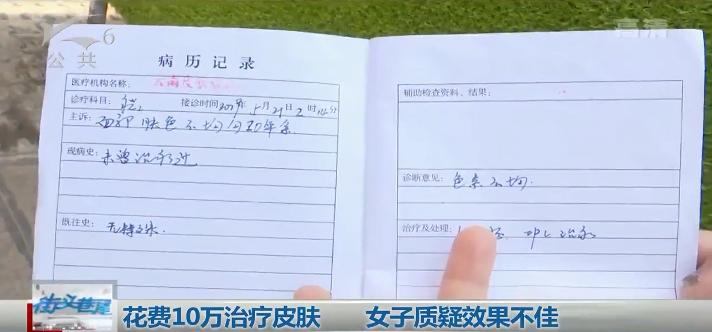 6
公共
高清
病历记录
医疗机构名称:
诊疗科目: 接诊时间2019年5月21日2时 分
主诉: 面部肤色不均匀20年余
现病史: 未曾治疗过
既往史: 无特殊.
辅助检查资料、结果:
诊断意见: 色素不均.
治疗及处理: OPL治疗
街头巷尾
花费10万治疗皮肤 女子质疑效果不佳